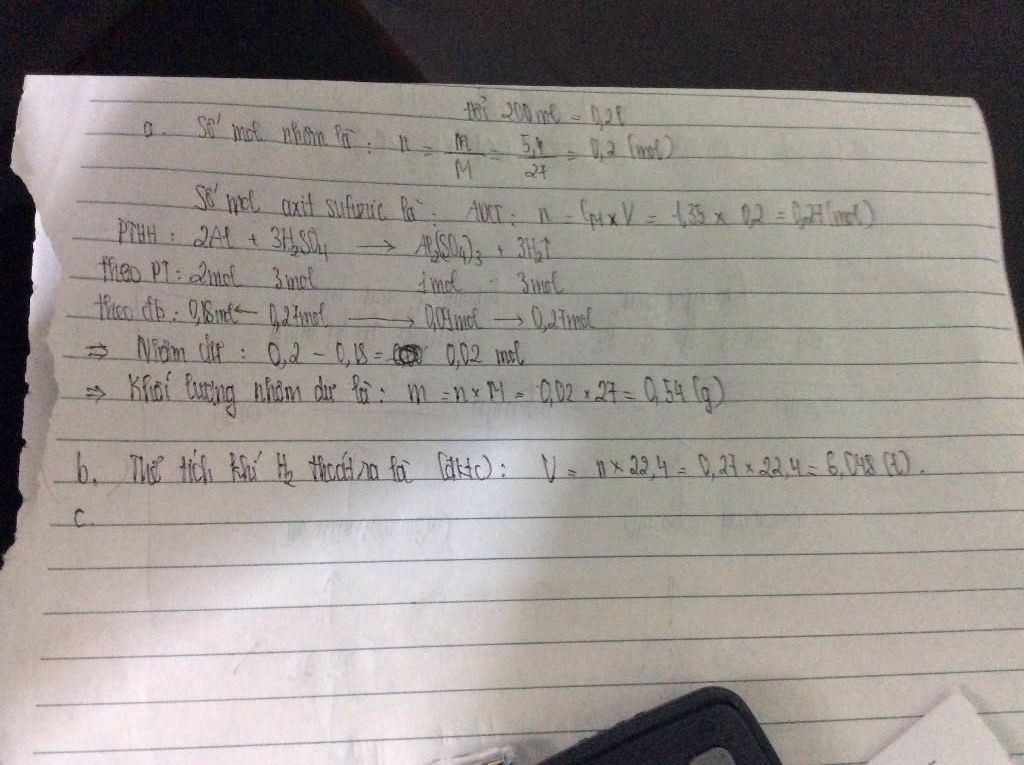 đổi 200ml = 0,2l
a. Số mol nhôm là : n = m/M = 5,4/27 = 0,2 (mol)
Số mol axit sufuric là : ADCT : n = CM × V = 1,35 × 0,2 = 0,27 (mol)
PTHH : 2Al + 3H₂SO₄ → Al₂(SO₄)₃ + 3H₂↑
theo PT : 2mol 3mol 1mol 3mol
theo đb : 0,18mol ← 0,27mol → 0,09mol → 0,27mol
⇒ Nhôm dư : 0,2 - 0,18 = 0,02 mol
⇒ Khối lượng nhôm dư là : m = n × M = 0,02 × 27 = 0,54 (g)
b. Thể tích khí H₂ thoát ra là (đktc) : V = n × 22,4 = 0,27 × 22,4 = 6,048 (l).
c.